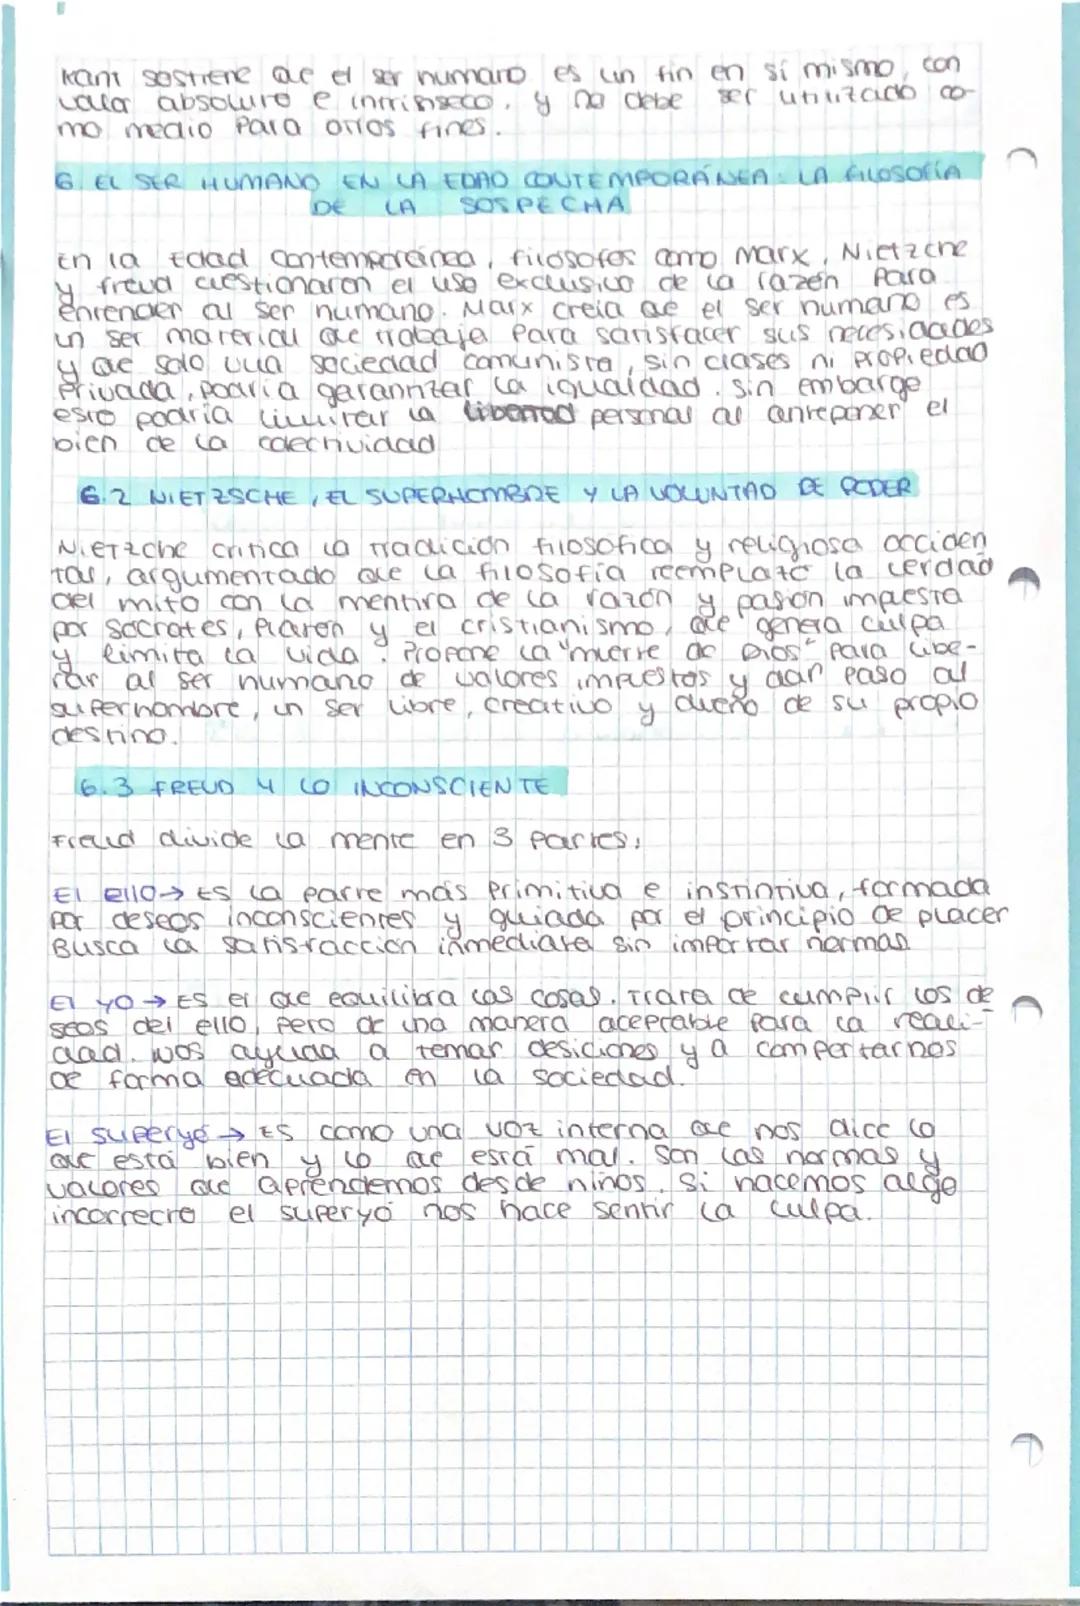 Kant sostiene que el ser humano es un fin en sí mismo, con
valor absoluto e intrinseco, y no debe ser utilizado co-
mo medio para otros fines.
6. EL SER HUMANO EN LA EDAD CONTEMPORÁNEA: LA FILOSOFÍA
DE LA SOSPECHA
En la Edad Contemporánea, filosofos como Marx, Nietzche
y Freud cuestionaron el uso exclusivo de la razón para
entender al ser humano. Marx creía que el ser humano es
un ser material que trabaja para satisfacer sus necesidades
y que solo una sociedad comunista, sin clases ni propiedad
privada, podría garantizar la igualdad. Sin embargo
esto podría limitar la libertad personal al anteponer el
bien de la colectividad
6.2 NIETZSCHE, EL SUPERHOMBRE Y LA VOLUNTAD DE PODER
Nietzche critica la tradición filosofica y religiosa occiden
tal, argumentado que la filosofía reemplató la verdad
del mito con la mentira de la razón y pasión impuesta
por Socrates, Platón y el cristianismo, que "genera culpa
y limita la vida". Propone la "muerte de Dios" para libe-
rar al ser humano de valores impuestos y dar paso al
superhombre, un ser libre, creativo y dueño de su propio
destino.
6.3 FREUD Y LO INCONSCIENTE
Freud divide la mente en 3 partes:
El ello→ Es la parte más primitiva e instintiva, formada
por deseos inconscientes y guiada por el principio de placer
Busca la satisfacción inmediata sin importar normas
El yo → Es el que equilibra las cosas. Trata de cumplir los de
seos del ello, pero de una manera aceptable para la reali-
dad. Nos ayuda a tomar desiciones y a comportarnos
de forma adecuada en la sociedad.
El superyó → Es como una voz interna que nos dice lo
que está bien y lo que está mal. Son las normas y
valores que aprendemos desde niños. Si hacemos algo
incorrecto el superyó nos hace sentir la culpa.